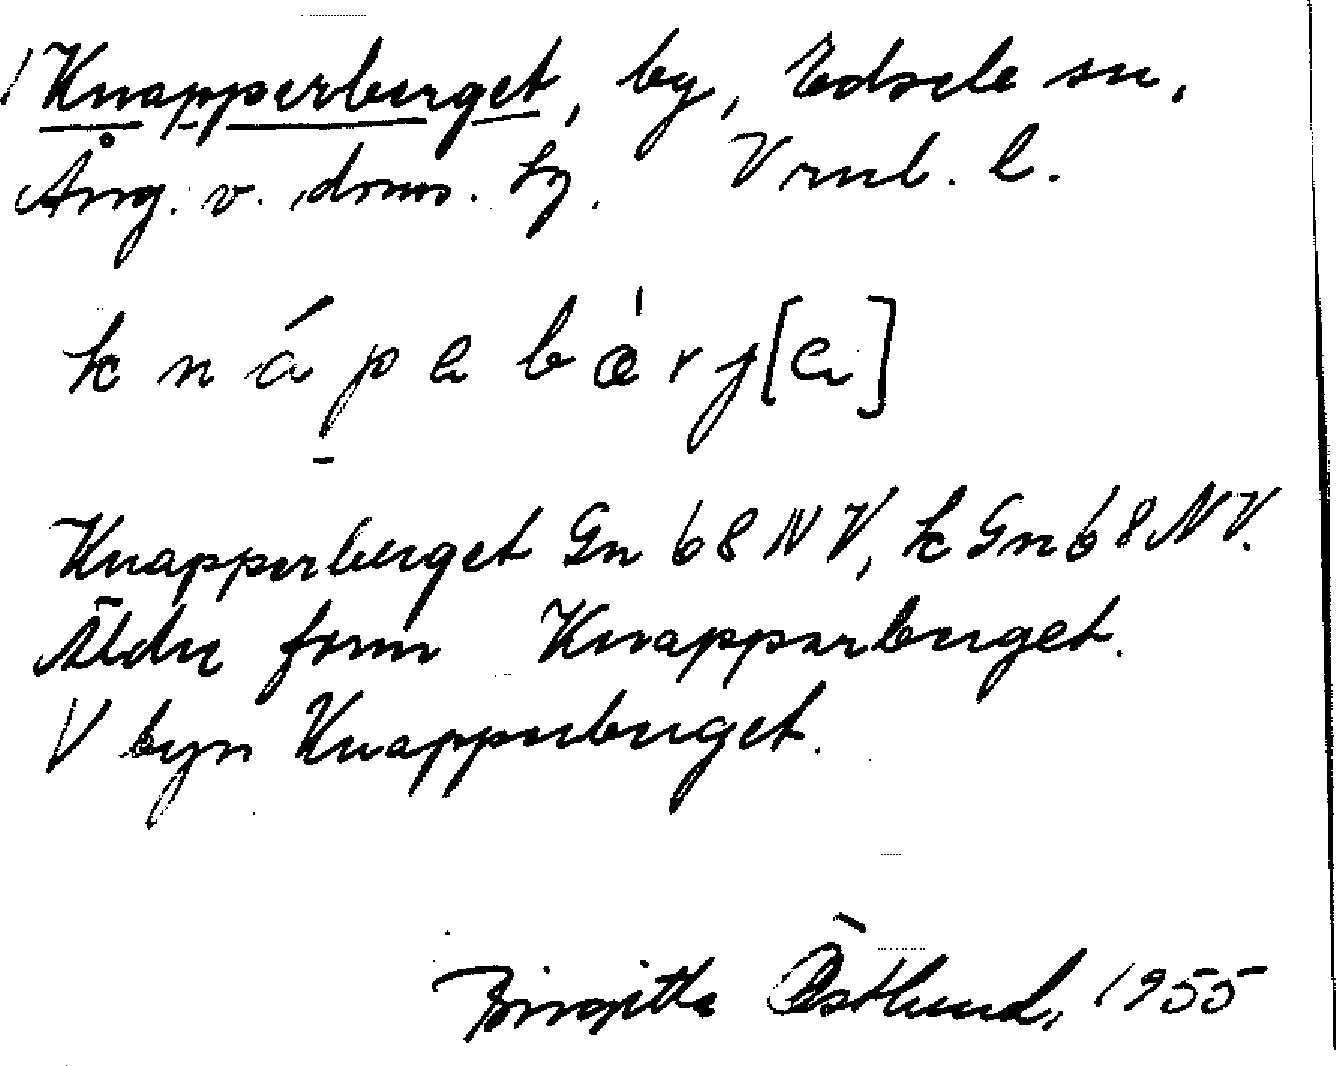 Knapperberget, by, Edsele sn,
Ång. v. doms. hg. Vrnl. l.
k n á p e b ǽ r j [e]
Knapperberget Gn 68 NV, k Gn 68 NV.
Äldre form Knapparberget.
V byn Knapperberget.
Birgitta Östlund, 1955